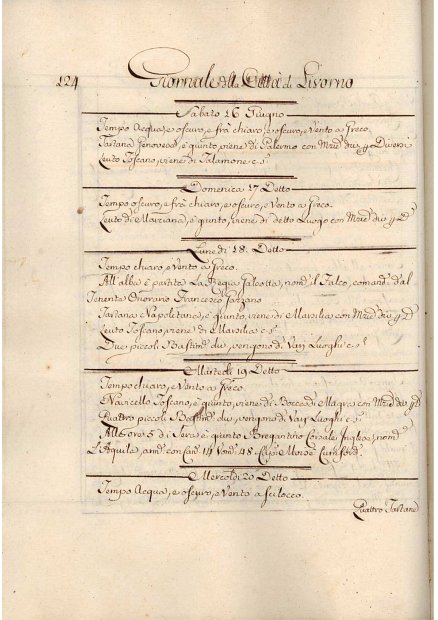 124 Giornale della Città di Livorno
Sabato 16 Giugno
Tempo Acqua, e oscuro, e frà chiaro, e oscuro, e Vento a Greco.
Tartana Genovese, è giunto, viene di Palermo con Mrzie div. p Diversi
Leuto Toscano, viene di Talamone c.s.
Domenica 17 Detto
Tempo oscuro, e frà chiaro, e oscuro, e Vento a Greco.
Leuto di Marciana, è giunto, viene di detto Luogo con Mrzie div. p D.
Lunedi 18. Detto
Tempo chiaro, e Vento a Greco.
All'alba è partita La Regia Galeotta, nom. il Falco, comand. dal
Tenente Onorario Francesco
Tartana Napolitana, è giunto, viene di Marsilia con Mrzie div. p D.
Leuto Toscano, viene di Marsilia c.s.
Due piccoli Bastim. div. vengono di Varj Luoghi c.s.
Martedi 19 Detto
Tempo chiaro, e Vento a Greco.
Navicello Toscano, è giunto, viene di Bocca di Magra con Mrzie div. p D.
Quattro piccoli Bastim. div. vengono di Varj Luoghi c.s.
All'Ore 5 di Sera è giunto Bregantino Corsale Inglese, nom.
L'Aquila, arm. con Can. 14 Uom. 48. Cap. Moisè
Mercoldi 20 Detto
Tempo Acqua, e oscuro, e Vento a Scilocco.
Quattro Tartane